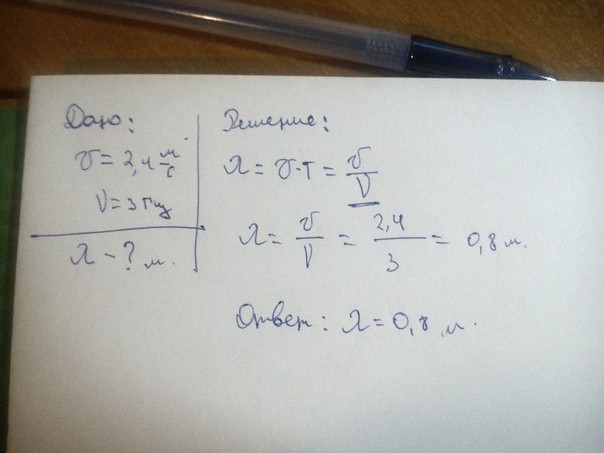 Дано:
υ = 2,4 м/с
ν = 3 Гц
λ - ? м.
Решение:
λ = υ·T = υ/ν
λ = υ/ν = 2,4/3 = 0,8 м.
Ответ: λ = 0,8 м.